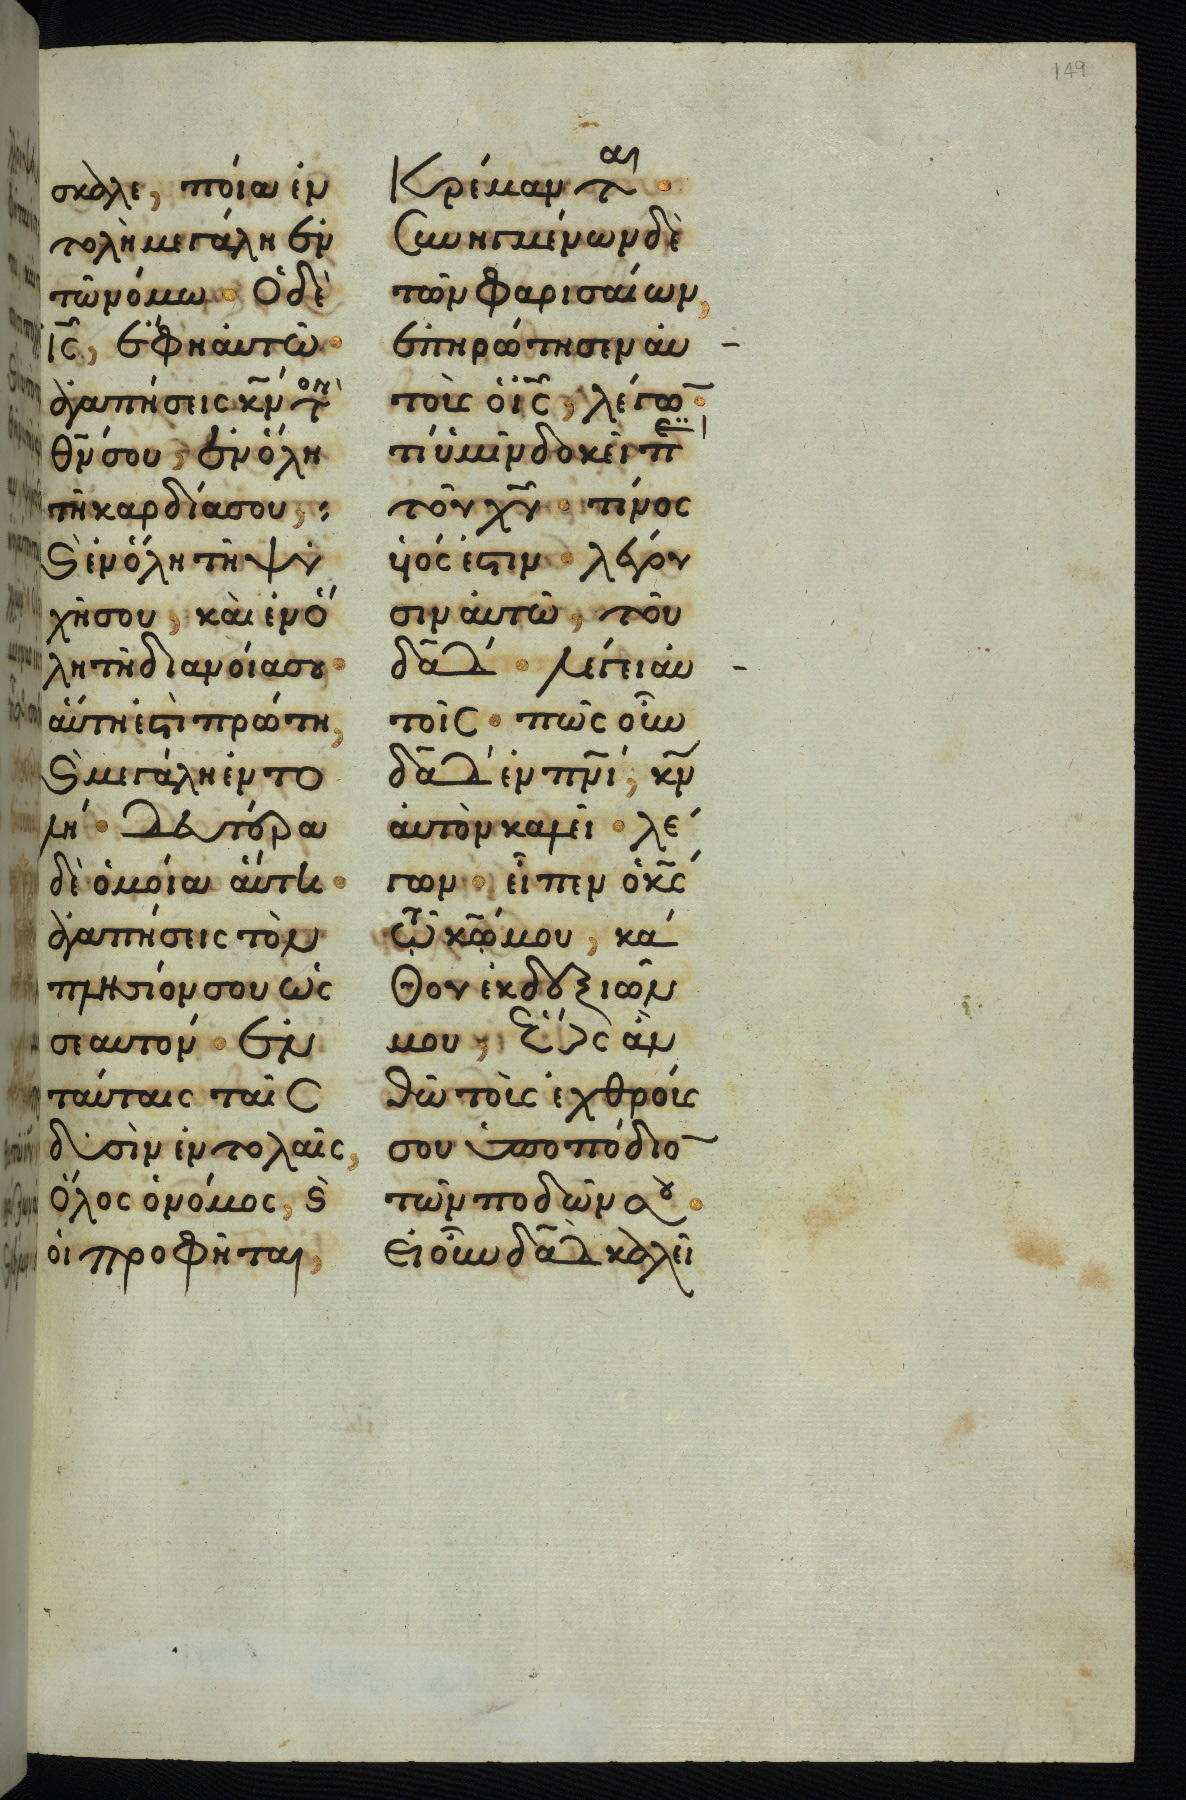 149
σκαλε, ποία ἐν
τολὴ μεγάλη ἐν
τῶ νόμω · Ὁ δὲ
ἰ̅ς̅, ἔφη αὐτῶ ·
ἀγαπήσεις κ̅ν̅ τὸν
θ̅ν̅ σου, ἐν ὅλη
τῆ καρδία σου, :
Ϛ̀ ἐν ὅλη τῆ ψυ
χῆ σου, καὶ ἐν ὅ
λη τῆ διανοία σȣ ·
αὕτη ἐστὶ πρώτη,
Ϛ̀ μεγάλη ἐντο
λή · Δευτέρα
δὲ ὁμοία αὕτη ·
ἀγαπήσεις τὸν
πλησίον σου ὡς
σεαυτόν · Ἐν
ταύταις ταῖς
δυσὶν ἐντολαῖς,
Ὅλος ὁ νόμος, Ϛ̀
οἱ προφῆται,
Κρέμανται ·
Συνηγμένων δὲ
τῶν Φαρισαίων,
ἐπηρώτησεν αὐ
τοὺς ὁ ἰ̅ς̅, λέγω̅ ·
τί ὑμῖν δοκεῖ πε
τοῦ χ̅υ̅ · τίνος
ὑός ἐστιν · λέγου
σιν αὐτῶ, τοῦ
δ̅α̅δ̅ · λέγει αὐ
τοῖς · πῶς οὖν
δ̅α̅δ̅ ἐν π̅ν̅ι̅, κ̅ν̅
αὐτὸν καλεῖ · λέ
γων · εἶπεν ὁ κ̅ς̅
τῶ κ̅ω̅ μου, κά
θου ἐκ δεξιῶν
μου, Ἕως ἂν
θῶ τοὺς ἐχθρούς
σου ὑποπόδιο̅
τῶν ποδῶν σȣ ·
Εἰ οὖν δ̅α̅δ̅ καλεῖ